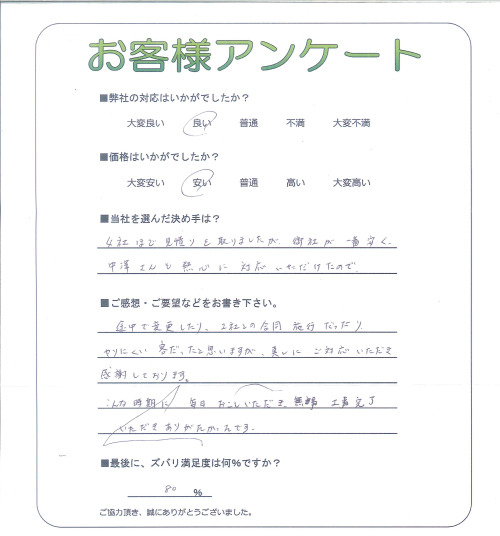 お客様アンケート
■弊社の対応はいかがでしたか？
大変良い 良い 普通 不満 大変不満
■価格はいかがでしたか？
大変安い 安い 普通 高い 大変高い
■当社を選んだ決め手は？
4社ほど見積りを取りましたが、御社が一番安く、
中澤さんも熱心に対応いただけたので。
■ご感想・ご要望などをお書き下さい。
途中で変更したり、2社との合同施行だったり
やりにくい客だったと思いますが、ご対応いただき
感謝しております。
こんな時期に毎日おこしいただき、無事工事完了
いただきありがたかったです。
■最後に、ズバリ満足度は何％ですか？
80 ％
ご協力頂き、誠にありがとうございました。